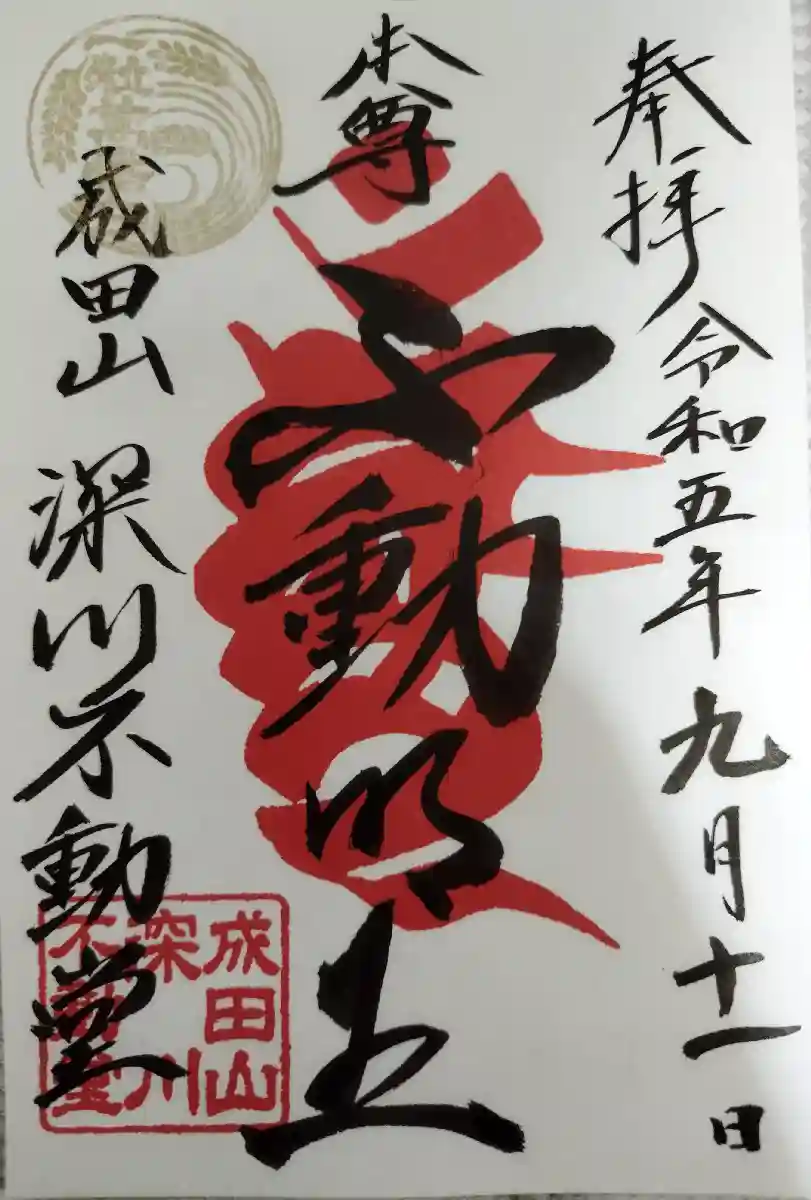 奉拝 令和五年九月十一日
本尊
不動明王
成田山 深川不動堂
成田山
深川
不動堂